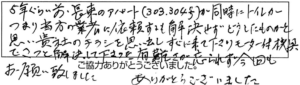 5年ぐらい前、長来のアパート(303.304号)が同時にトイレがつまり貴方の業者に依頼するも解決せずどうしたものかと
思い貴社のチラシを思い出しすぐに来て下さりセンサー付機械
でさっと解決して下さった
忘られず今回も
お願い致しました
ご協力ありがとうございました。
ありがとうございました